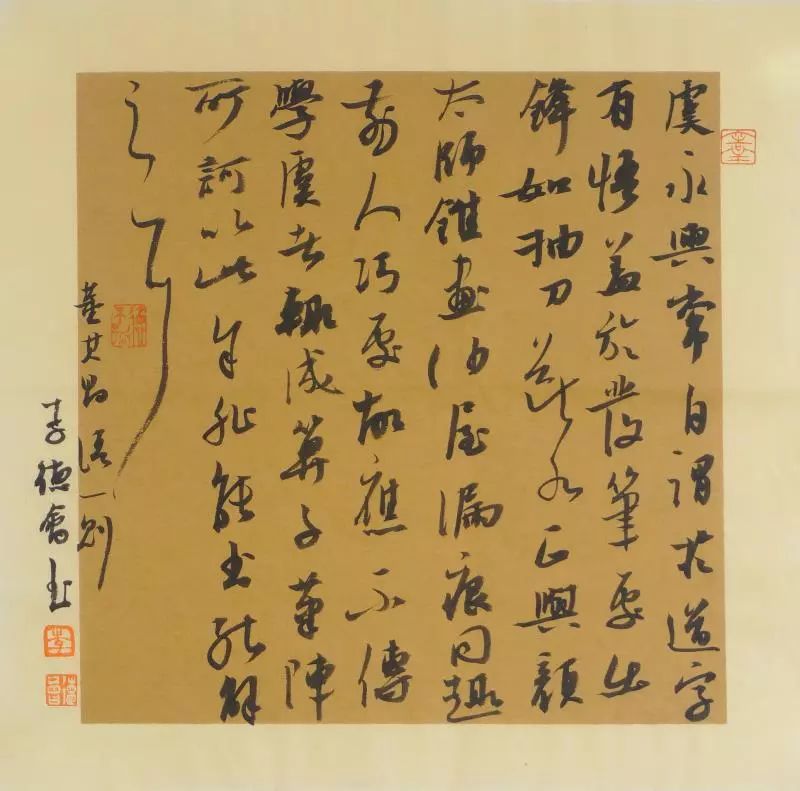 虞永興常自謂於道字
有悟蓋於發筆處出
鋒如抽刀斷水正與顏
太師錐畫沙屋漏痕同趣
前人巧處故應不傳
學虞者輒成筭子筆陣
所訶以此余非能書能解
之耳
董其昌語一則
李德書